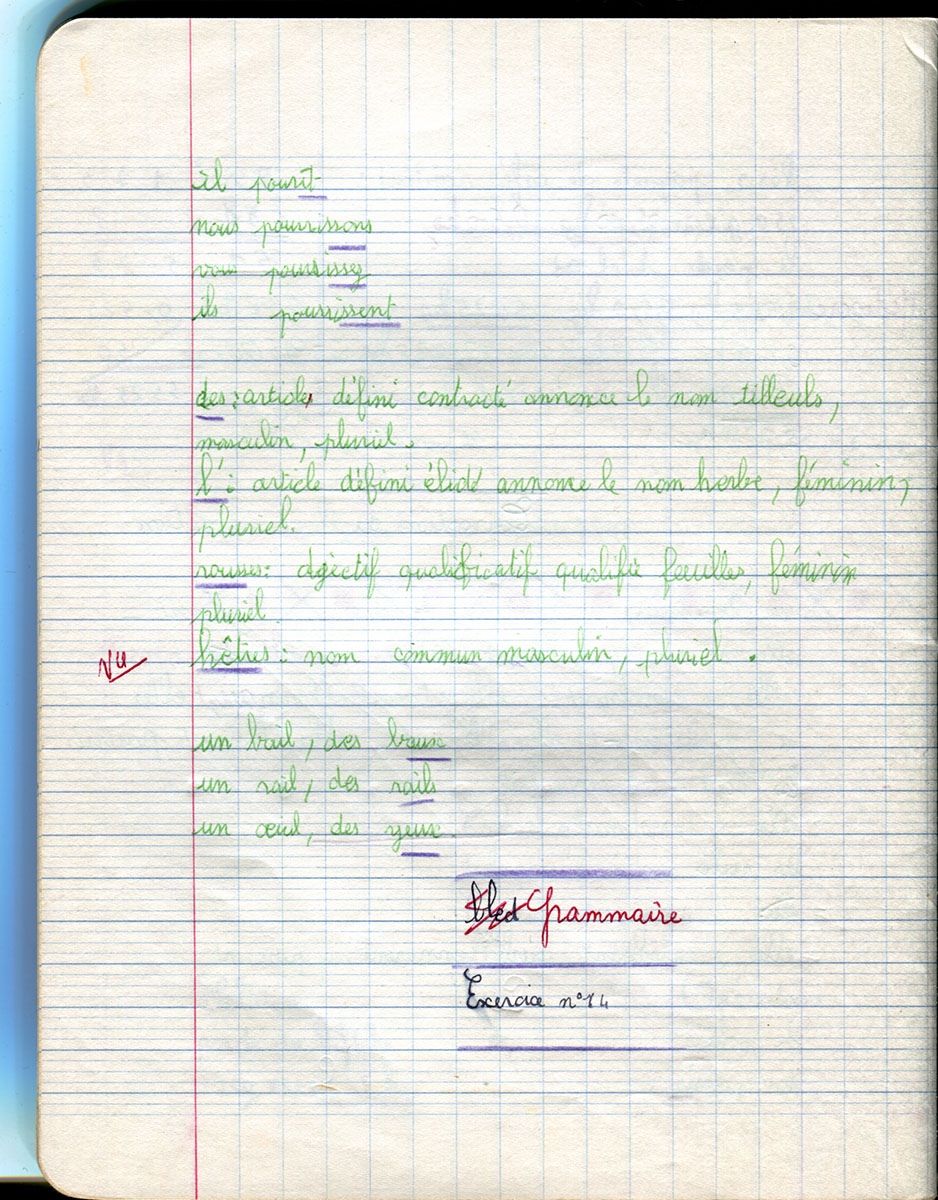 il pourit
nous pourrissons
vous pourrissez
ils pourrissent
des : article, défini contracté annonce le nom tilleuls,
masculin, pluriel.
l' : article défini élidé annonce le nom herbe, féminin,
pluriel.
rousses : adjectif qualificatif qualifie feuilles, féminin
pluriel.
Vu
hêtres : nom commun masculin, pluriel.
un bail, des baux
un rail, des rails
un œuil, des yeux
bled Grammaire
Exercice n°14